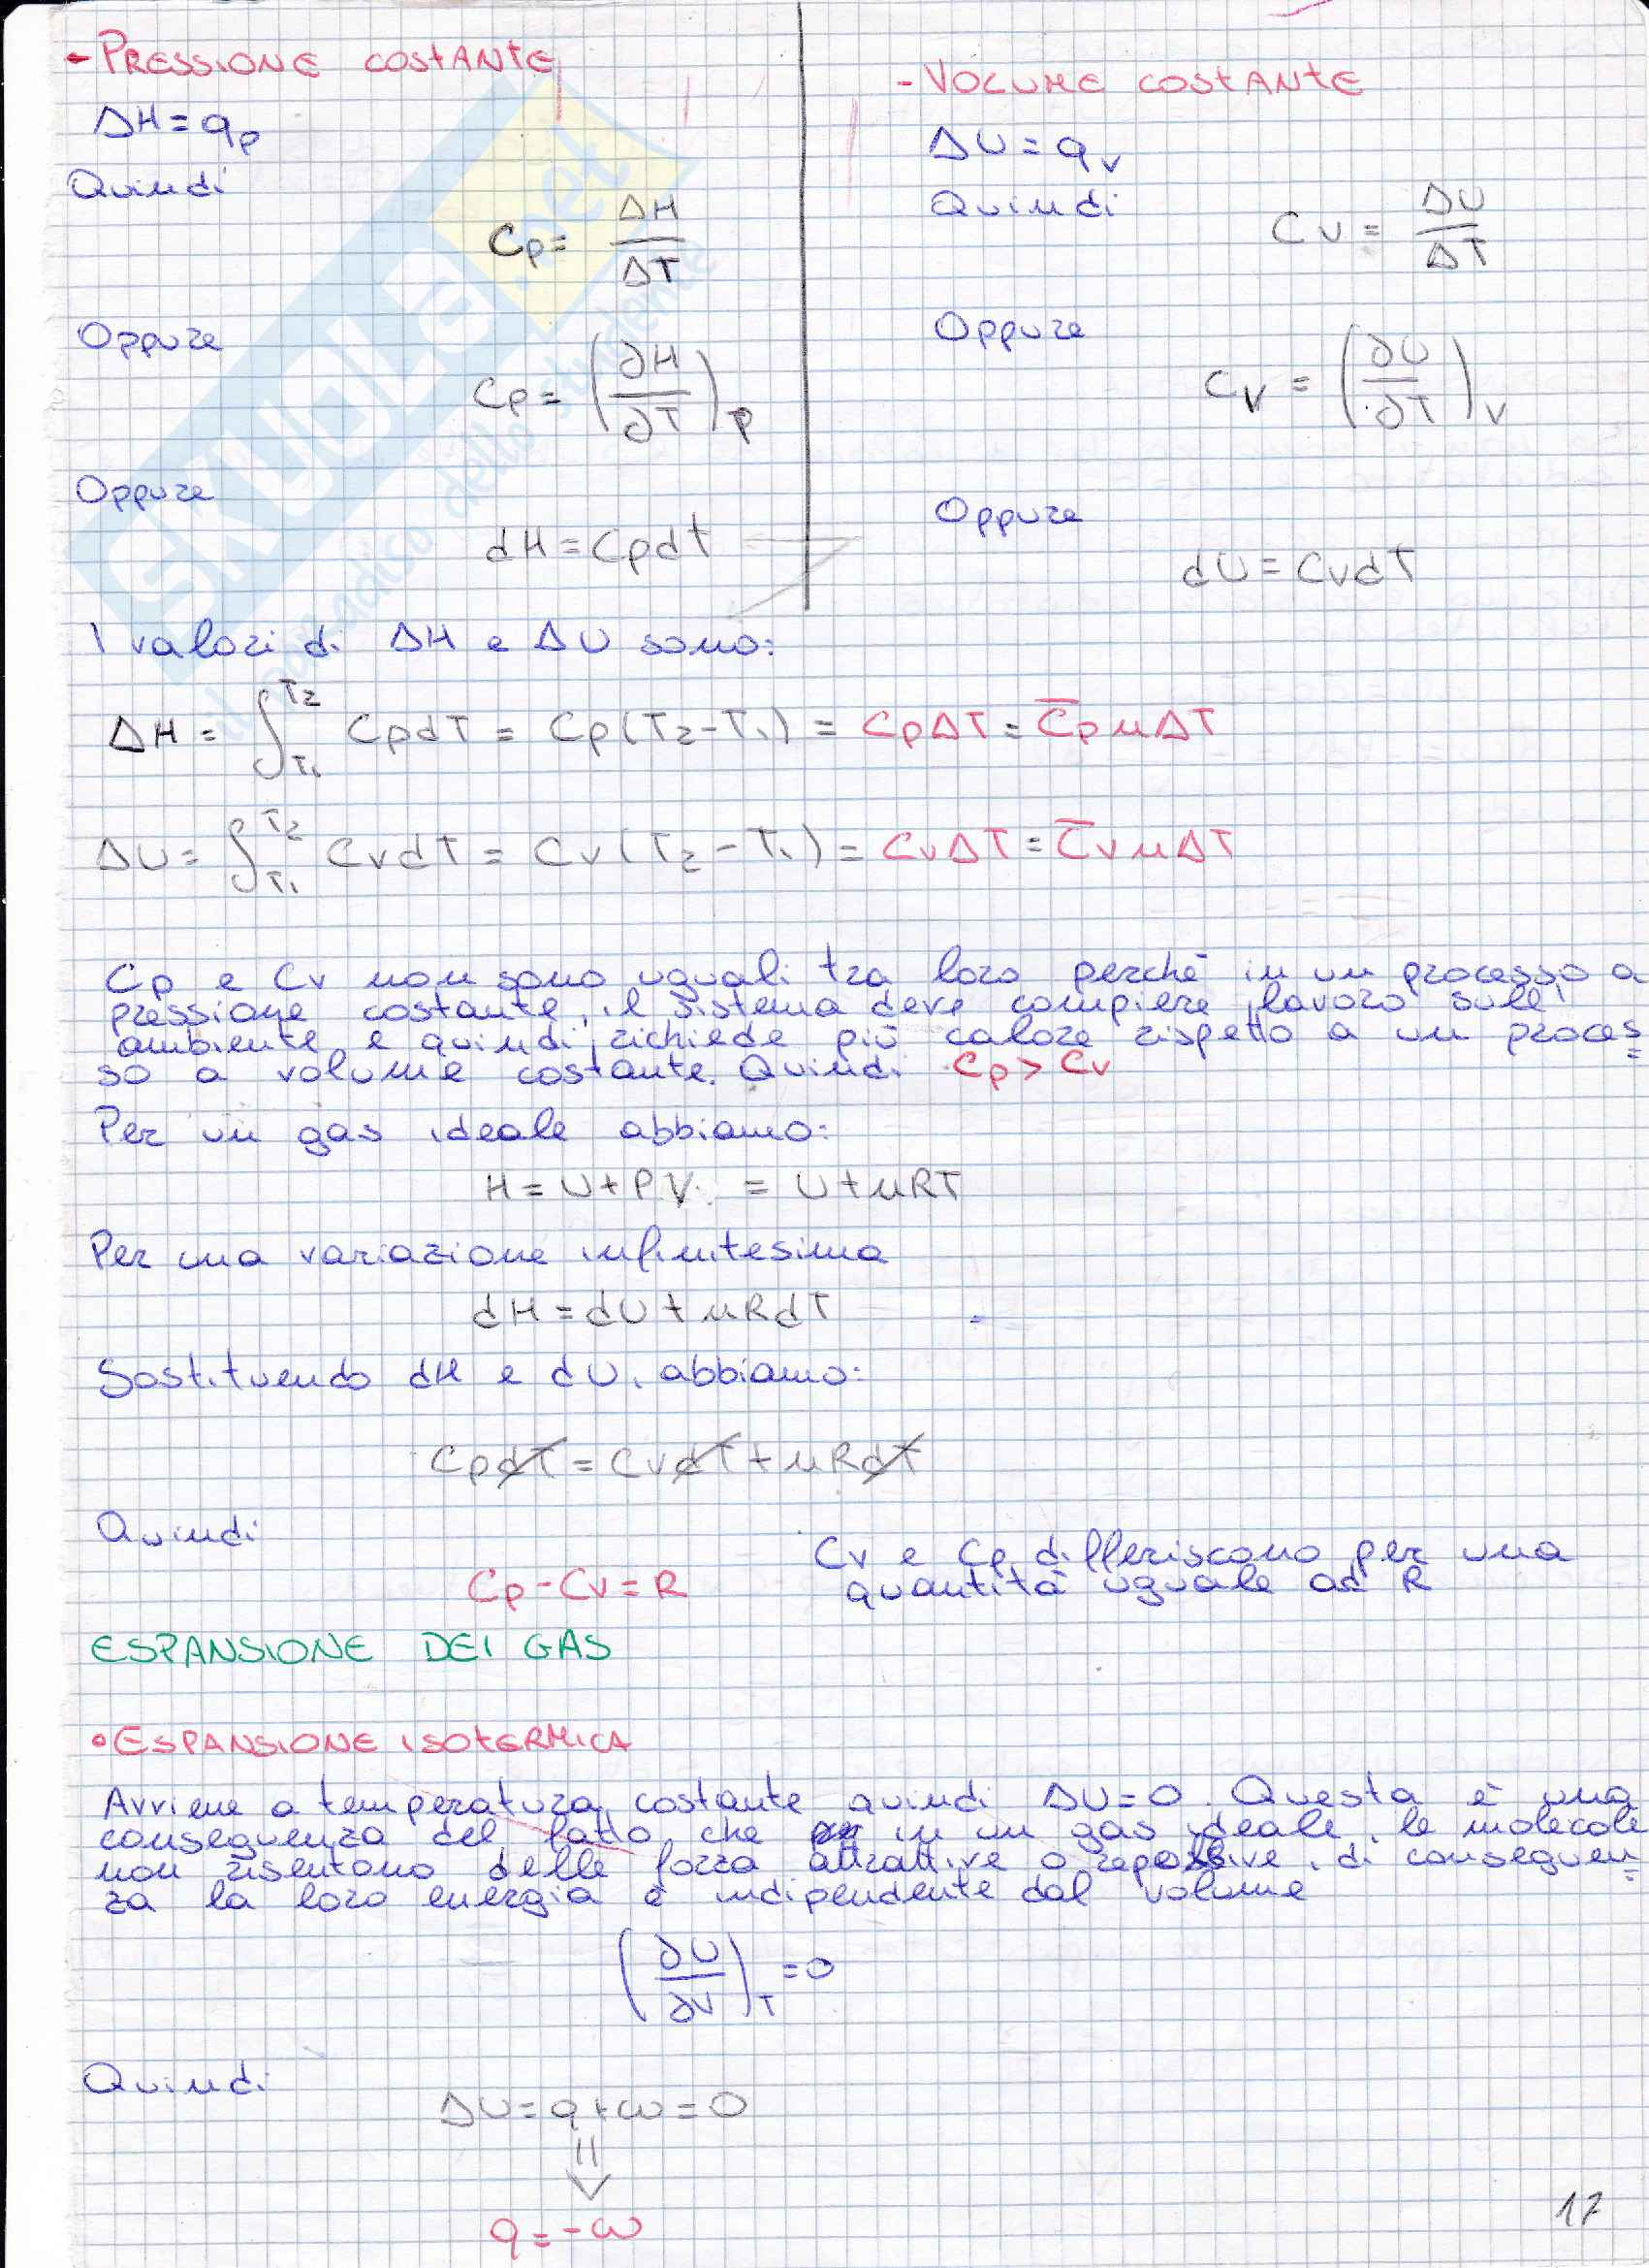 - PRESSIONE COSTANTE
ΔH = qp
Quindi
Cp = ΔH/ΔT
Oppure
Cp = (∂H/∂T)P
Oppure
dH = CpdT
- VOLUME COSTANTE
ΔU = qv
Quindi
Cv = ΔU/ΔT
Oppure
Cv = (∂U/∂T)V
Oppure
dU = CvdT
I valori di ΔH e ΔU sono:
ΔH = ∫T1T2 CpdT = Cp(T2-T1) = CpΔT = C̅pnΔT
ΔU = ∫T1T2 CvdT = Cv(T2-T1) = CvΔT = C̅vnΔT
Cp e Cv non sono uguali tra loro perché in un processo a
pressione costante, il sistema deve compiere lavoro sull'
ambiente e quindi richiede più calore rispetto a un proces=
so a volume costante. Quindi Cp > Cv
Per un gas ideale abbiamo:
H = U + PV = U + nRT
Per una variazione infinitesima
dH = dU + nRdT
Sostituendo dH e dU, abbiamo:
CpdT = CvdT + nRdT
Quindi
Cp - Cv = R
Cv e Cp differiscono per una
quantità uguale ad R
ESPANSIONE DEI GAS
• ESPANSIONE ISOTERMICA
Avviene a temperatura costante quindi ΔU=0. Questa è una
conseguenza del fatto che in un gas ideale, le molecole
non risentono delle forza attrattive o repulsive, di conseguen=
za la loro energia è indipendente dal volume
(∂U/∂V)T = 0
Quindi
ΔU = q + w = 0
⇓
q = -w
17
SKUOLA.net